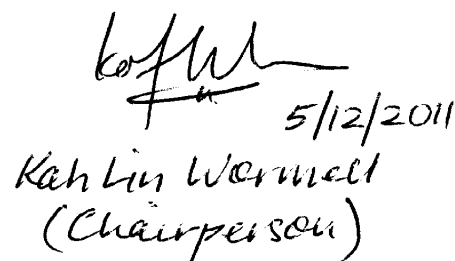 5/12/2011
Kah Lin Wormell
(Chairperson)